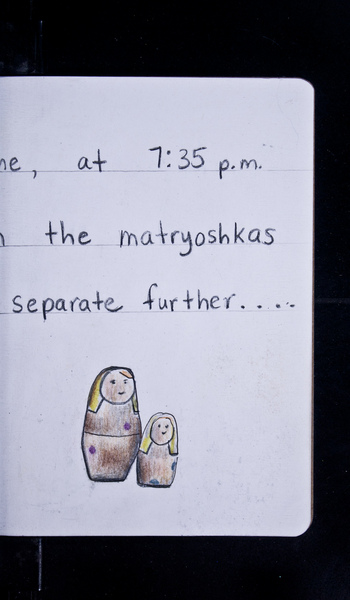 at 7:35 p.m.
the matryoshkas
separate further.....